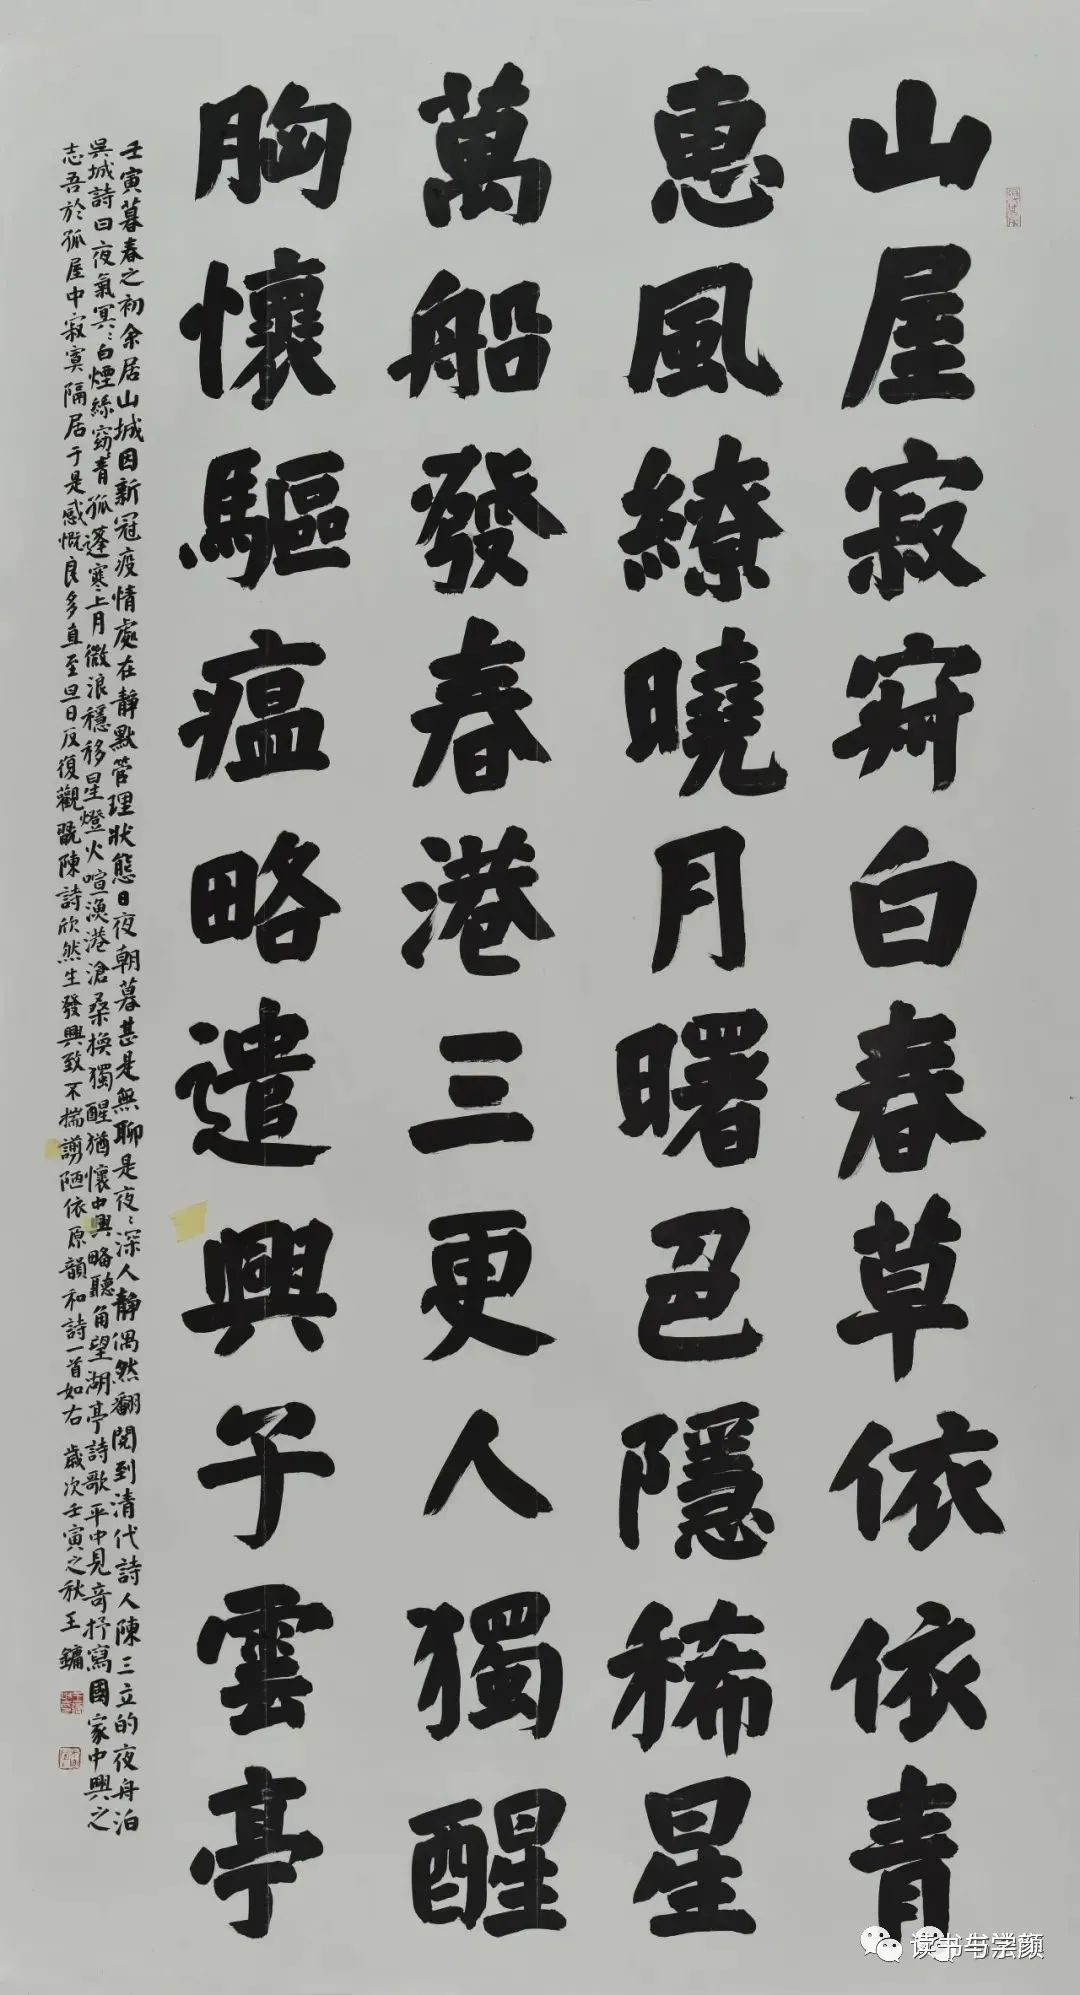 山屋寂寂白春草依依青
惠風繚曉月曙色隱稀星
萬船發春港三更人獨醒
胸懷驅瘟略遣興子雲亭
壬寅暮春之初余居山城因新冠疫情處在靜默管理狀態日夜朝暮甚是無聊是夜夜深人靜偶然翻閱到清代詩人陳三立的夜舟泊
吳城詩曰夜氣冥冥白煙絲窈窈青孤蓬寒上月微浪穩移星燈火喧漁港滄桑換獨醒猶懷中興略聽角望湖亭詩歌平中見奇抒寫國家中興之
志吾於孤屋中寂寞隔居于是感慨良多直至旦日反復觀翫陳詩欣然生發興致不揣謭陋依原韻和詩一首如右 歲次壬寅之秋王鏞
读书与学颜